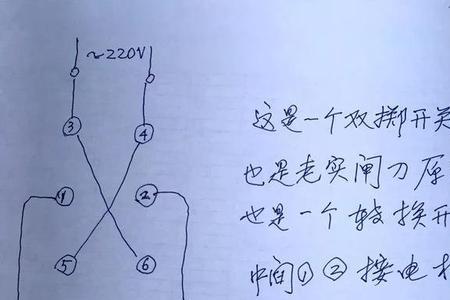 ~220V
③ ④
① ②
⑤ ⑥
这是一个双掷开关
也是老实闸刀原
也是一个转换开
中间①②接电